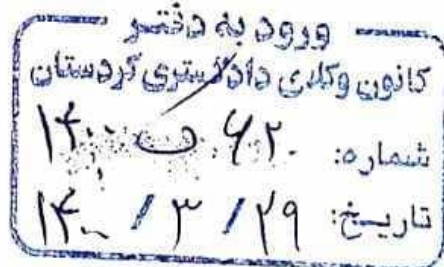 ورود به دفتر
کانون وکلای دادگستری کردستان
شماره: ۶۲۰ ت ۱۴۰۰
تاریخ: ۱۴۰۰/۳/۲۹